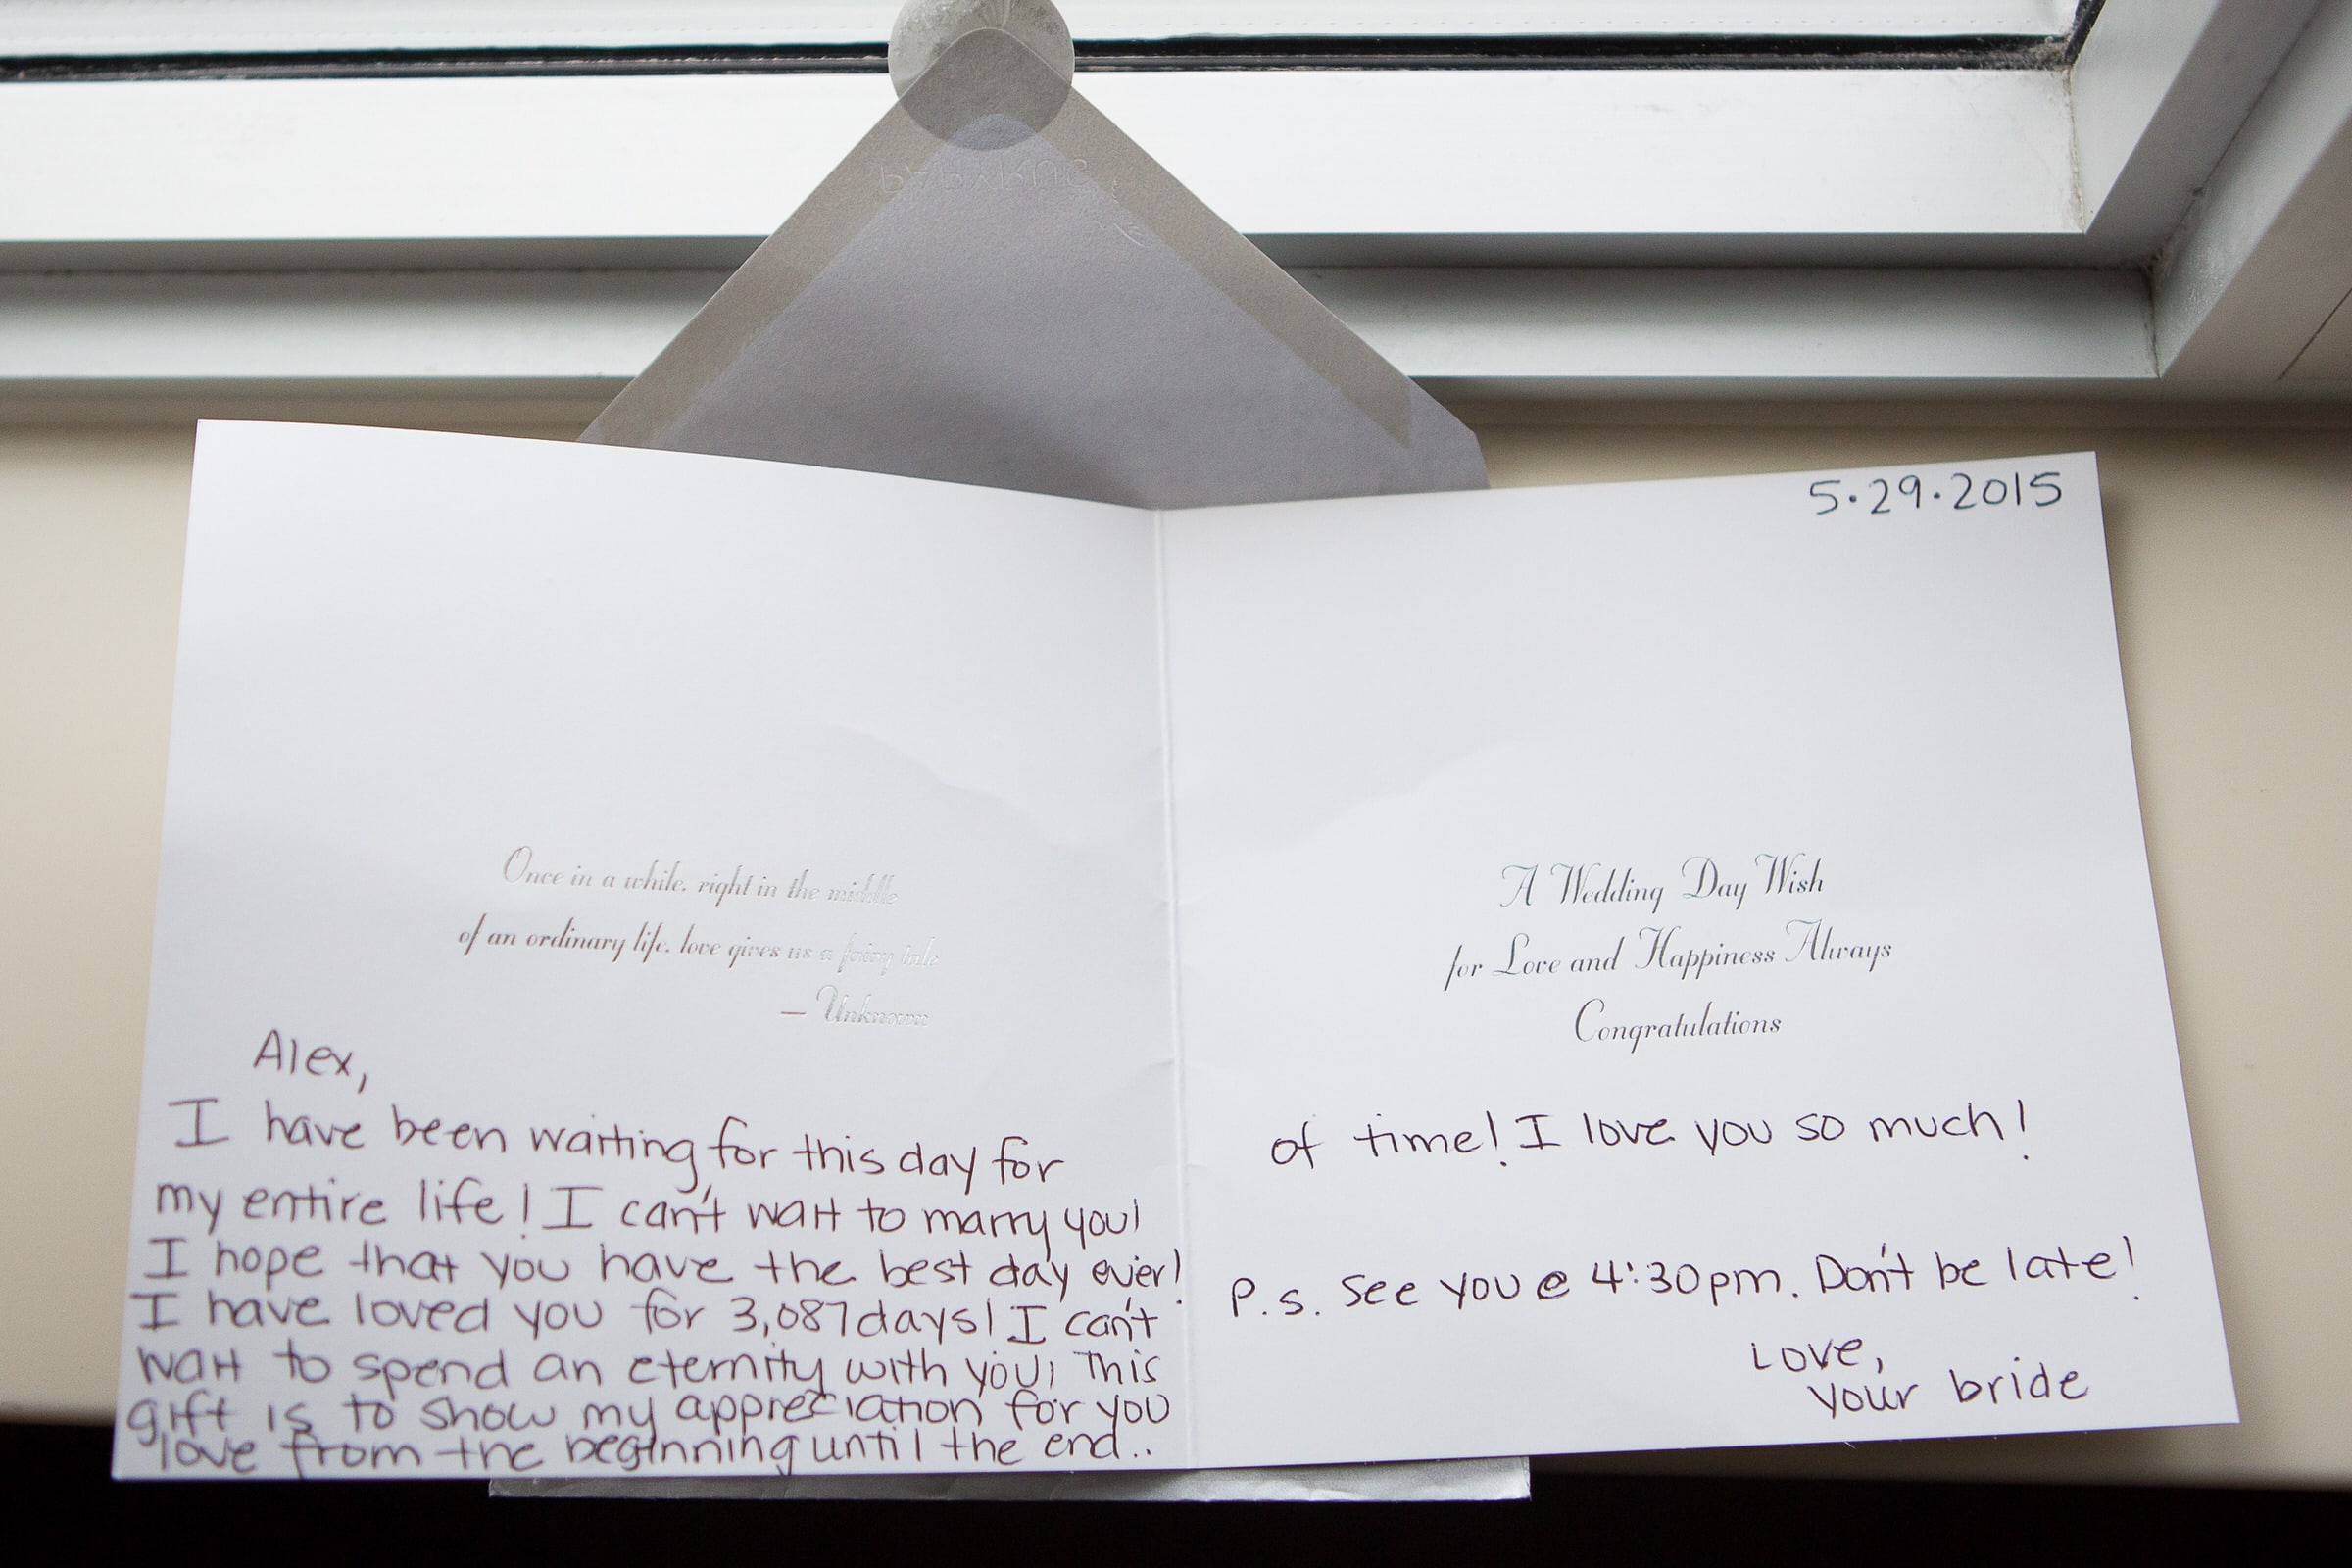 PAPYRUS
Once in a while, right in the middle
of an ordinary life, love gives us a fairy tale
— Unknown
Alex,
I have been waiting for this day for
my entire life! I can't wait to marry you!
I hope that you have the best day ever!
I have loved you for 3,087 days! I can't
wait to spend an eternity with you! This
gift is to show my appreciation for you
love from the beginning until the end..
5.29.2015
A Wedding Day Wish
for Love and Happiness Always
Congratulations
of time! I love you so much!
P.S. See you @ 4:30pm. Don't be late!
Love,
your bride